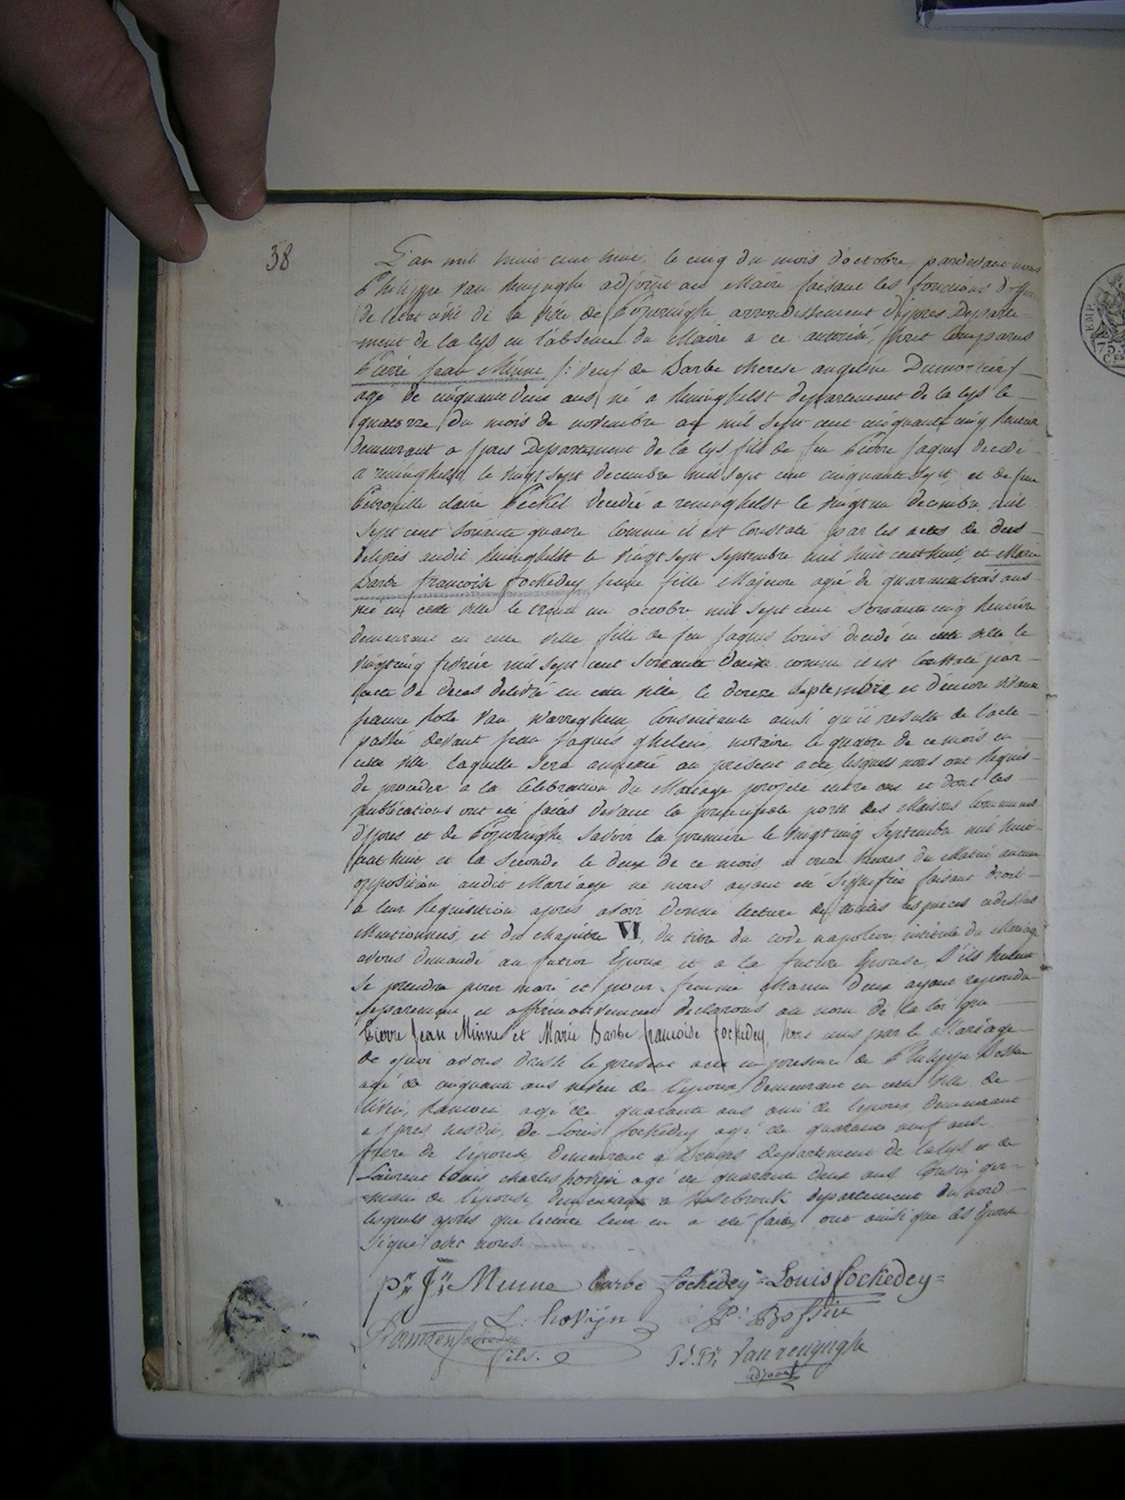 38
L'an mil huit cent huit, le cinq du mois d'octobre pardevant nous
Philippe Van Renynghe adjoint au Maire faisant les fonctions d'offi
de l'etat civil de la ville de Poperinghe arrondissement d'Ypres Departe
-ment de la Lys en l'absence du Maire a ce autorisé, sont Comparus
Pierre Jean Minne /: veuf de Barbe therese angeline Dumortier /
agé de cinquante deux ans, né a Reninghelst departement de la lys le
quatorze du mois de novembre mil sept cent cinquante cinq
demeurant a ypres Departement de la lys fils de feu Pierre Jaques decedé
a reninghelst le vingt sept decembre mil sept cent cinquante sept, et de feue
Petronille claire decedée a reninghelst le decembre mil
sept cent soixante quatre comme il est Constaté par les actes de deces
delivrés audit Reninghelst le vingt sept septembre mil huit cent huit, et Marie
Barbe francoise fockedey fille Majeure agé de quarante trois ans
née en cette ville le trente un octobre mil sept cent soixante cinq
demeurant en cette ville fille de feu Jaques louis decedé en cette ville le
vingt cinq fevrier mil sept cent soixante comme il est Constaté par
l'acte de deces delivré en cette ville, le douze septembre et d'encore vivante
jeanne Van Warreghem Consentante ainsi qu'il resulte de l'acte
passée devant jean Jaques ghelein, notaire le quatre de ce mois en
cette ville laquelle sera annexée au présent acte lesquels nous ont Requis
de proceder a la Celebration du Mariage projeté entre eux et dont les
publications ont été faites devant la principale porte des Maisons Communes
d'ypres et de Poperinghe savoir la premiere le vingt cinq septembre mil huit
cent huit et la seconde le deux de ce mois a onze heures du Matin aucune
opposition audit Mariage ne nous ayant été signifiée faisant droit
a leur Requisition apres avoir donné lecture de toutes les pieces cidessus
Mentionnées, et du chapitre VI du titre du code napoleon intitulé du Mariage
avons demandé au futur Epoux et a la future Epouse, s'ils veulent
se prendre pour mari et pour femme chacun deux ayant repondu
separement et affirmativement declarons au nom de la loi que
Pierre Jean Minne et Marie Barbe francoise fockedey, sont unis par le Mariage
de quoi avons dressé le present acte en presence de Philippe
agé de cinquante ans neveu de l'epoux, demeurant en cette ville de
agé de quarante ans ami de l'epoux demeurant
a Ypres de Louis fockedey agé de quarante neuf ans
frere de l'epouse, demeurant a Bruges departement de la lys et de
Laurent Louis charles hovijn agé de quarante deux ans Cousin ger-
-main de l'epouse demeurant a departement du nord
lesquels apres que lecture leur en a été faite, ont ainsi que les Epoux
signé avec nous.
Pre Jn Minne Barbe Fockedey = Louis Fockedey =
L: hovijn
fils.
Van renynghe
adjoint